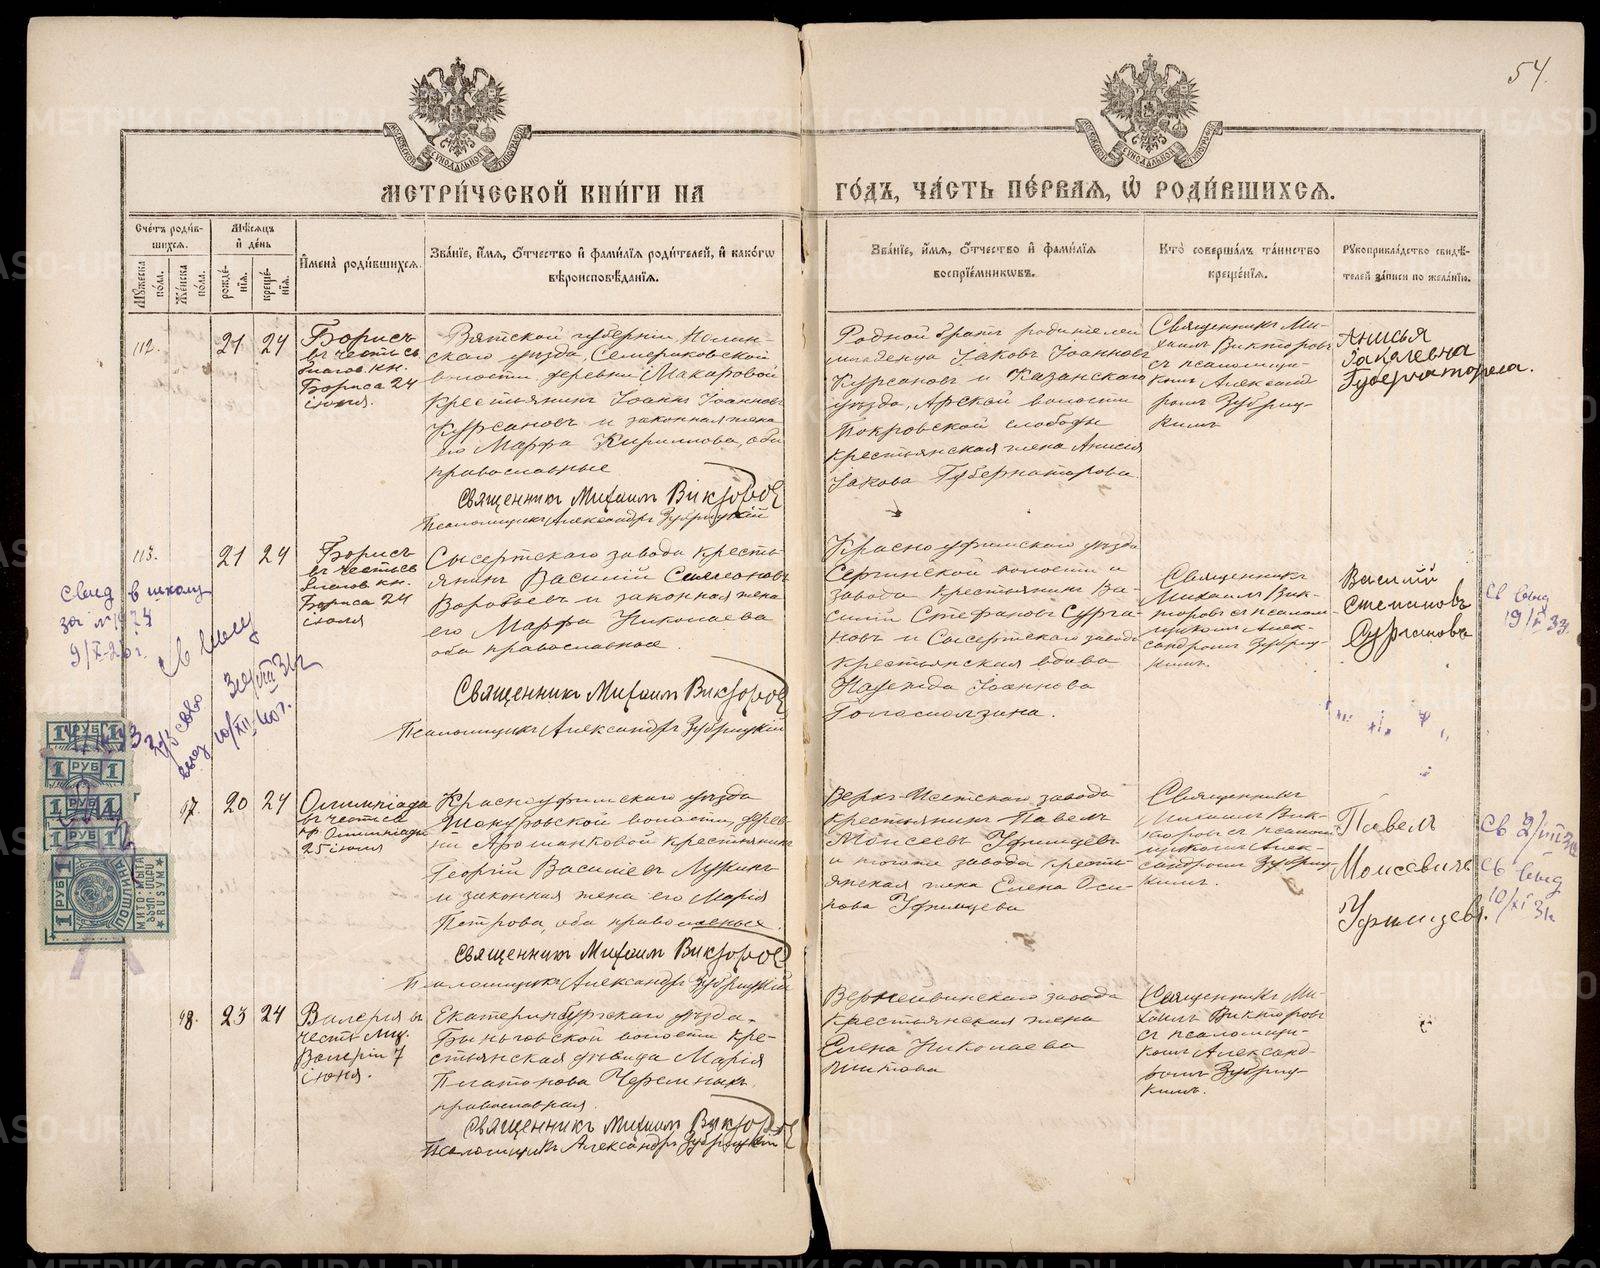 54.
МЕТРИ́ЧЕСКОЙ КНИ́ГИ НА
ГО́ДЪ, ЧА́СТЬ ПЕ́РВАѦ, Ѽ РОДИ́ВШИХСѦ.
Сче́тъ роди́в-
шихсѧ.
Мѣ́сѧцъ
и҆ де́нь
И҆мена̀ роди́вшихсѧ.
Зва́нїе, и҆́мѧ, ѻ҆́тчество и҆ фами́лїѧ роди́телей, и҆ како́гѡ
вѣроисповѣ́данїѧ.
Му́жеска по́ла.
Же́нска по́ла.
рожде́-нїѧ.
креще́-нїѧ.
Зва́нїе, и҆́мѧ, ѻ҆́тчество и҆ фами́лїѧ
воспрїе́мникѡвъ.
Кто̀ соверша́лъ та́инство
креще́нїѧ.
Рꙋкоприкла́дство свидѣ́-
телей за́писи по жела́нїю.
112.
21 24
Борисъ
въ честь св.
благов. кн.
Бориса 24
іюля.
Вятской губерніи, Нолин-
скаго уѣзда, Семеряковской
волости, деревни Макаровой
крестьянинъ Іоаннъ Іоанновъ
Курсановъ и законная жена
его Марфа Кириллова, оба
православные
Священникъ Михаилъ Викторов
Псаломщикъ Александръ Зубрицкій
Родной братъ родителей
младенца Іаковъ Іоанновъ
Курсановъ и Казанскаго
уѣзда, Арской волости
Покровской слободы
крестьянская жена Анисія
Іакова Губернаторова.
Священникъ Ми-
хаилъ Викторовъ
съ псаломщи-
комъ Александ
ромъ Зубриц-
кимъ
Анисья
Губернаторова.
113.
21 24
Борисъ
въ честь св
благов. кн.
Бориса 24
іюля
Сысертскаго завода кресть-
янинъ Василій Симеоновъ
Воробьевъ и законная жена
его Марфа Николаева
оба православные.
Священникъ Михаилъ Викторов
Псаломщикъ Александръ Зубрицкій
Красноуфимскаго уѣзда
Сергинской волости и
завода крестьянинъ Ва-
силій Стефановъ Сурга-
новъ и Сысертскаго завода
крестьянская вдова
Надежда Іоаннова
Священникъ
Михаилъ Вик-
торовъ съ псалом-
щикомъ Алек-
сандромъ Зубриц-
кимъ.
Василий
Степановъ
Сургановъ
свид в школу
за № 1974
1 РУБ 1
1 РУБ 1
1 РУБ 1
1 РУБ 1
1 РУБ
97.
20 24
Олимпіада
въ честь св
25 іюля
Красноуфимскаго уѣзда
волости, дерев-
ни крестьянинъ
Георгій Василіевъ
и законная жена его Марія
Петрова, оба православные.
Священникъ Михаилъ Викторов
Псаломщикъ Александръ Зубрицкій
Верхъ-Исетскаго завода
крестьянинъ Павелъ
Моисеевъ Уфимцевъ
и того же завода кресть-
янская жена Елена Оси-
пова Уфимцева
Священникъ
Михаилъ Вик-
торовъ съ псалом
щикомъ Алек-
сандромъ Зубриц-
кимъ.
Павелъ
Моисеевичъ
Уфимцевъ.
98.
23 24
Валерія въ
честь муц.
Валеріи 7
іюня.
Екатеринбургскаго уѣзда.
Быньговской волости кре-
стьянская дѣвица Марія
Платонова
православная.
Священникъ Михаилъ Викторов
Псаломщикъ Александръ Зубрицкій
Верхнейвинскаго завода
крестьянская жена
Елена Николаева
Священникъ Ми-
хаилъ Викторовъ
съ псаломщи-
комъ Александ-
ромъ Зубриц-
кимъ.
METRIKI.GASO-URAL.RU